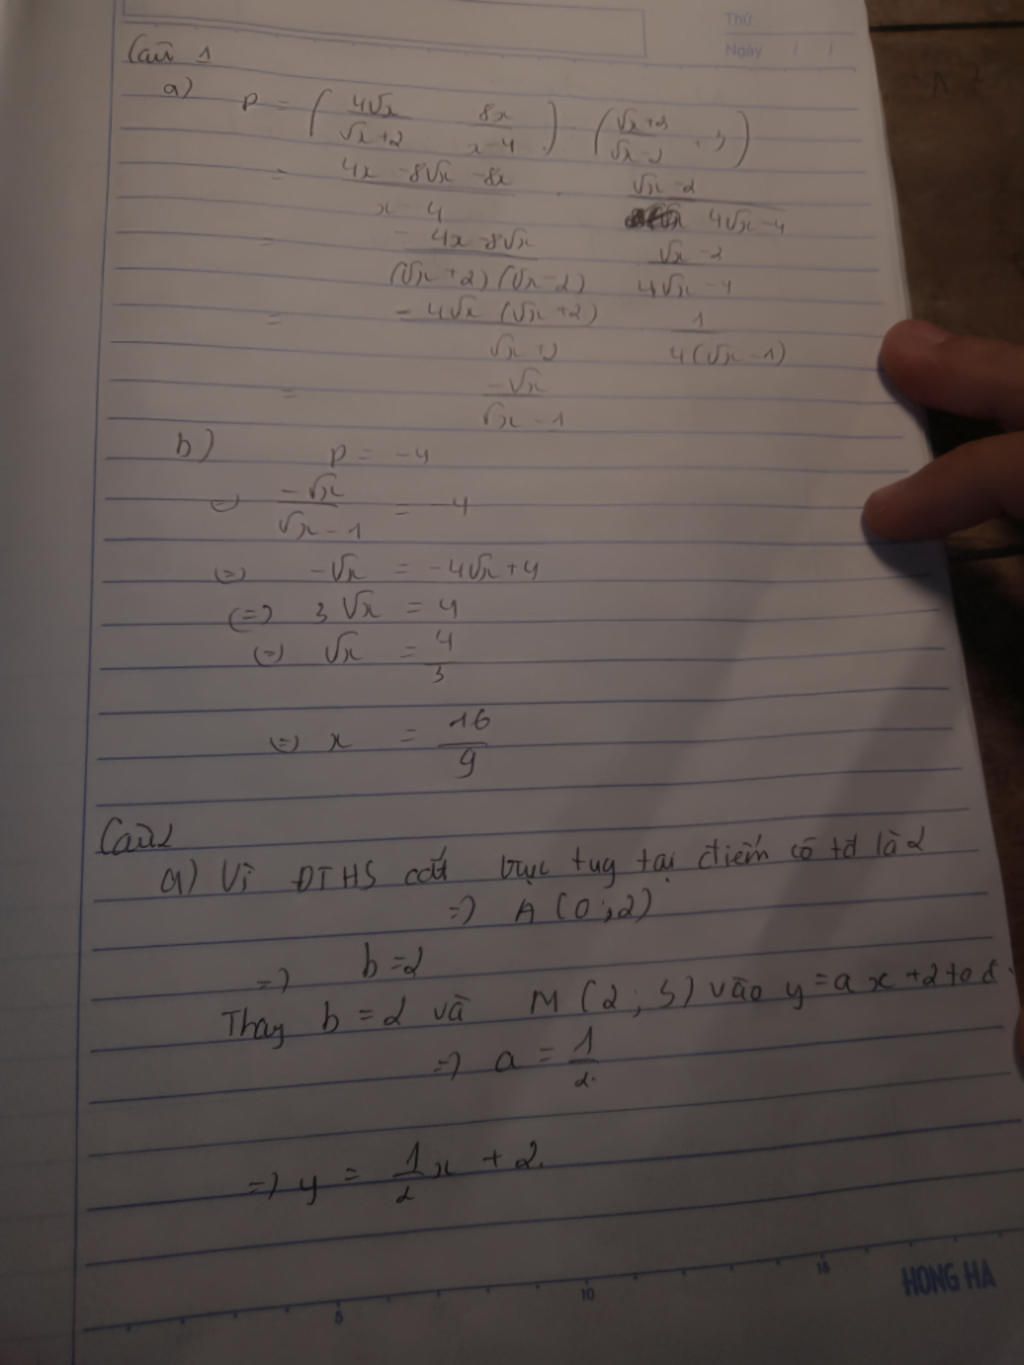 Thứ
Ngày / /
Câu 1
a) P = ( 4√x / √x+2 8x / x-4 ) . ( √x+2 / √x-2 + 3 )
= 4x - 8√x - 8x / x-4 . √x-2 / 4√x-4
= -4x-8√x / (√x+2)(√x-2) √x-2 / 4√x-4
= -4√x (√x+2) / √x+2 1 / 4(√x-1)
= -√x / √x-1
b) P = -4
(=) -√x / √x-1 = -4
(=) -√x = -4√x+4
(=) 3√x = 4
(=) √x = 4/3
(=) x = 16/9
Câu 2
a) Vì ĐTHS cắt trục tug tại điểm có tđ là 2
=> A (0;2)
=> b=2
Thay b=2 và M (2;3) vào y=ax+2 ta đc
=> a = 1/2.
=> y = 1/2 x + 2.
5 10 15
HONG HA